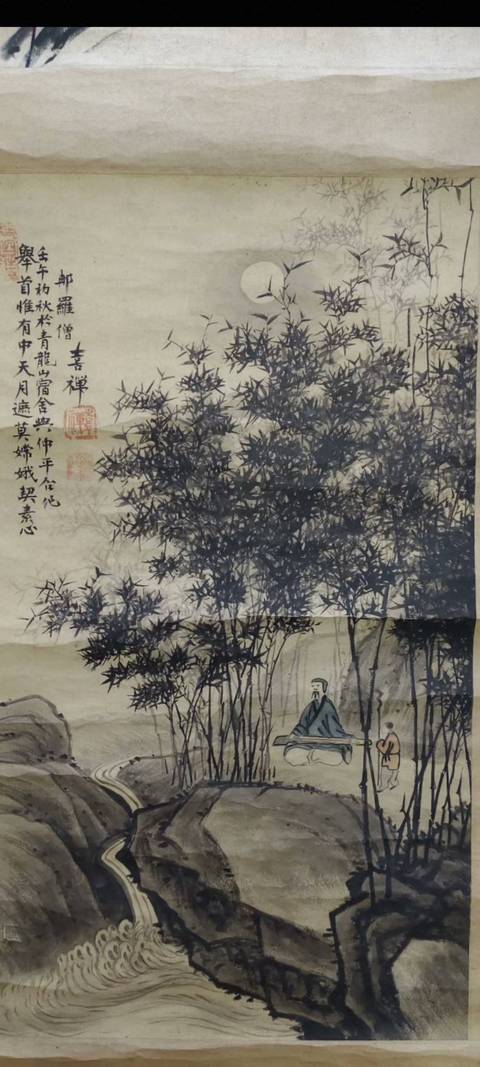 舉首惟有中天月遮莫嫦娥契素心
壬午初秋於青龍山宿舍與仲平合作
郍羅僧
喜禪